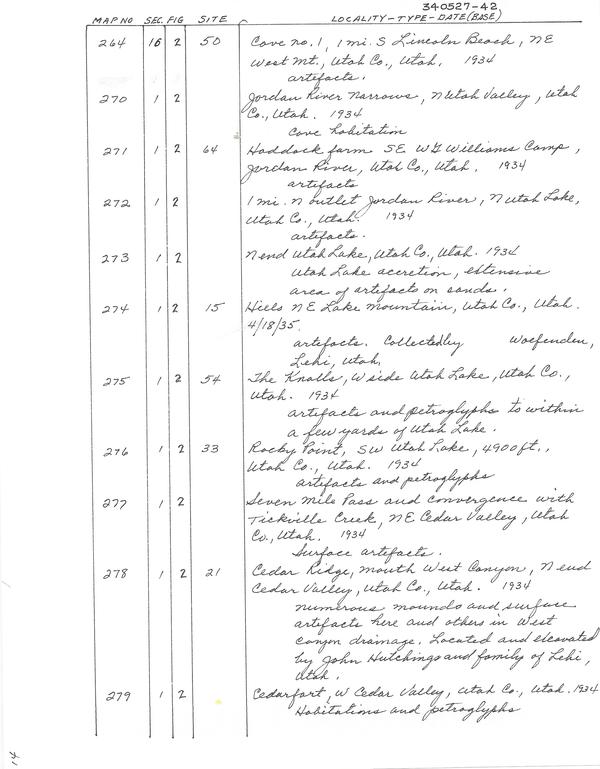 340527-42
MAP NO SEC. FIG SITE LOCALITY-TYPE-DATE(BASE)
264 16 2 50 Cave no. 1, 1 mi. S Lincoln Beach, NE
West Mt., Utah Co., Utah. 1934
artifacts.
270 1 2 Jordan River Narrows, N Utah Valley, Utah
Co., Utah. 1934
cave habitation
271 1 2 64 Haddock farm SE WG Williams Camp,
Jordan River, Utah Co., Utah. 1934
artifacts
272 1 2 1 mi. N outlet Jordan River, N Utah Lake,
Utah Co., Utah. 1934
artifacts.
273 1 2 N end Utah Lake, Utah Co., Utah. 1934
Utah Lake accretion, extensive
area of artifacts on sands.
274 1 2 15 Hills NE Lake Mountain, Utah Co., Utah.
4/18/35.
artifacts. Collected by Woffenden,
Lehi, Utah.
275 1 2 54 The Knolls, W side Utah Lake, Utah Co.,
Utah. 1934
artifacts and petroglyphs to within
a few yards of Utah Lake.
276 1 2 33 Rocky Point, SW Utah Lake, 4900 ft.,
Utah Co., Utah. 1934
artifacts and petroglyphs
277 1 2 Seven Mile Pass and convergence with
Tickville Creek, NE Cedar Valley, Utah
Co., Utah. 1934
Surface artifacts.
278 1 2 21 Cedar Ridge, mouth West Canyon, N end
Cedar Valley, Utah Co., Utah. 1934
numerous mounds and surface
artifacts here and others in West
canyon drainage. Located and excavated
by John Hutchings and family of Lehi,
Utah.
279 1 2 Cedarfort, W Cedar Valley, Utah Co., Utah. 1934
Habitations and petroglyphs
14